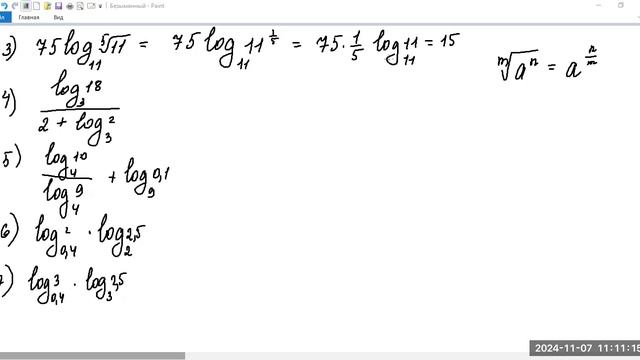 Безымянный - Paint
Главная Вид
3) 75 log₁₁ ⁵√11 = 75 log₁₁ 11^(1/5) = 75 · 1/5 log₁₁ 11 = 15
ᵐ√aⁿ = a^(n/m)
4) log₃ 18 / (2 + log₃ 2)
5) log₄ 10 / log₄ 9 + log₉ 0,1
6) log₀,₄ 2 · log₂ 2,5
7) log₀,₄ 3 · log₃ 2,5
2024-11-07 11:11:15